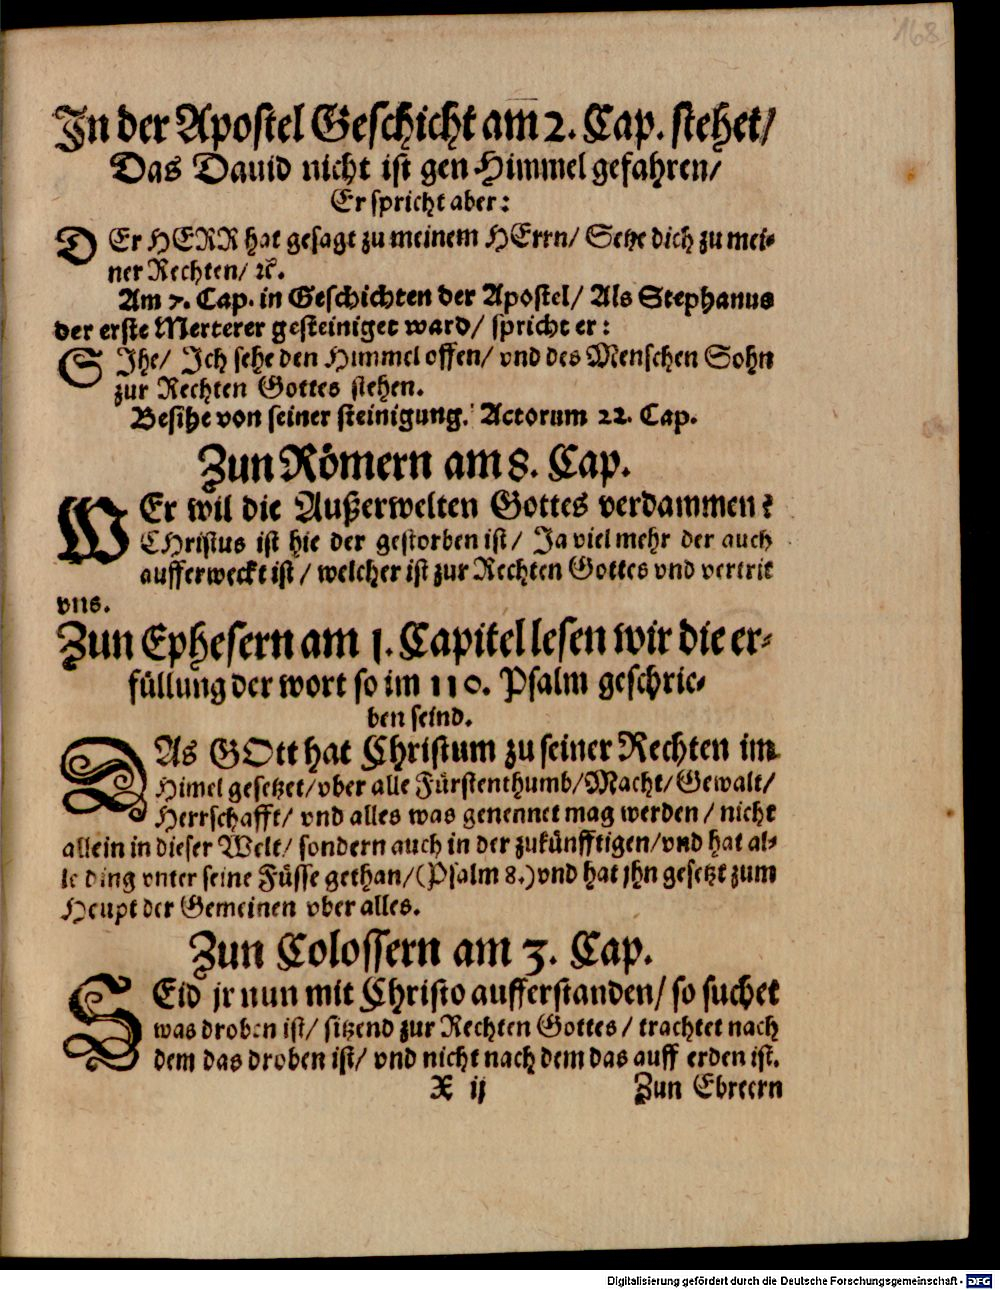 168
In der Apostel Geschicht am 2. Cap. stehet/
Das Dauid nicht ist gen Himmel gefahren/
Er spricht aber:
DEr HERR hat gesagt zu meinem HErrn/ Setze dich zu mei-
ner Rechten/ ꝛc.
Am 7. Cap. in Geschichten der Apostel/ Als Stephanus
der erste Merterer gesteiniget ward/ spricht er:
SIhe/ Ich sehe den Himmel offen/ vnd des Menschen Sohn
zur Rechten Gottes stehen.
Besihe von seiner steinigung. Actorum 22. Cap.
Zun Römern am 8. Cap.
WEr wil die Außerwelten Gottes verdammen?
CHristus ist hie der gestorben ist/ Ja viel mehr der auch
aufferweckt ist/ welcher ist zur Rechten Gottes vnd vertrit
vns.
Zun Ephesern am 1. Capitel lesen wir die er-
füllung der wort so im 110. Psalm geschrie-
ben seind.
DAs GOtt hat Christum zu seiner Rechten im
Himel gesetzet/ vber alle Fürstenthumb/ Macht/ Gewalt/
Herrschafft/ vnd alles was genennet mag werden/ nicht
allein in dieser Welt/ sondern auch in der zukünfftigen/ vnd hat al-
le ding vnter seine Füsse gethan/ (Psalm 8.) vnd hat jhn gesetzt zum
Heupt der Gemeinen vber alles.
Zun Colossern am 3. Cap.
SEid jr nun mit Christo aufferstanden/ so suchet
was droben ist/ sitzend zur Rechten Gottes/ trachtet nach
dem das droben ist/ vnd nicht nach dem das auff erden ist.
X ij Zun Ebreern
Digitalisierung gefördert durch die Deutsche Forschungsgemeinschaft - DFG